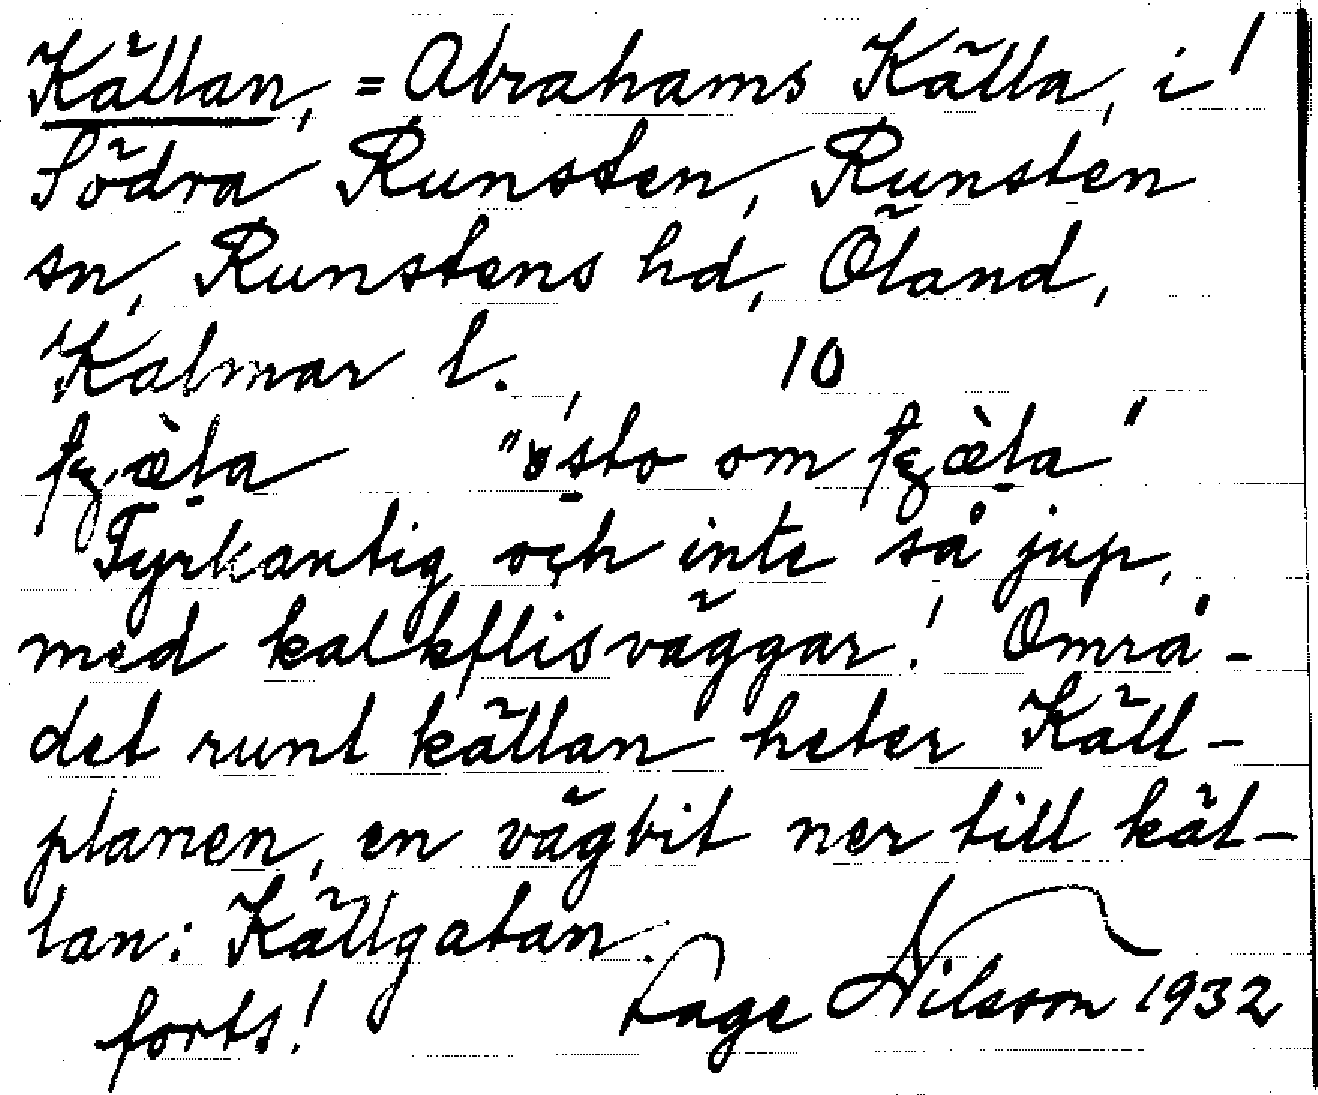 Källan, = Abrahams Källa, i
Södra Runsten, Runsten
sn, Runstens hd, Öland,
Kalmar l. 10
"ɵsto om
Fyrkantig och inte så jup,
med kalkflisväggar! Områ-
det runt källan heter Käll-
planen, en vägbit ner till käl-
lan: Källgatan.
forts! Åage Nilsson 1932